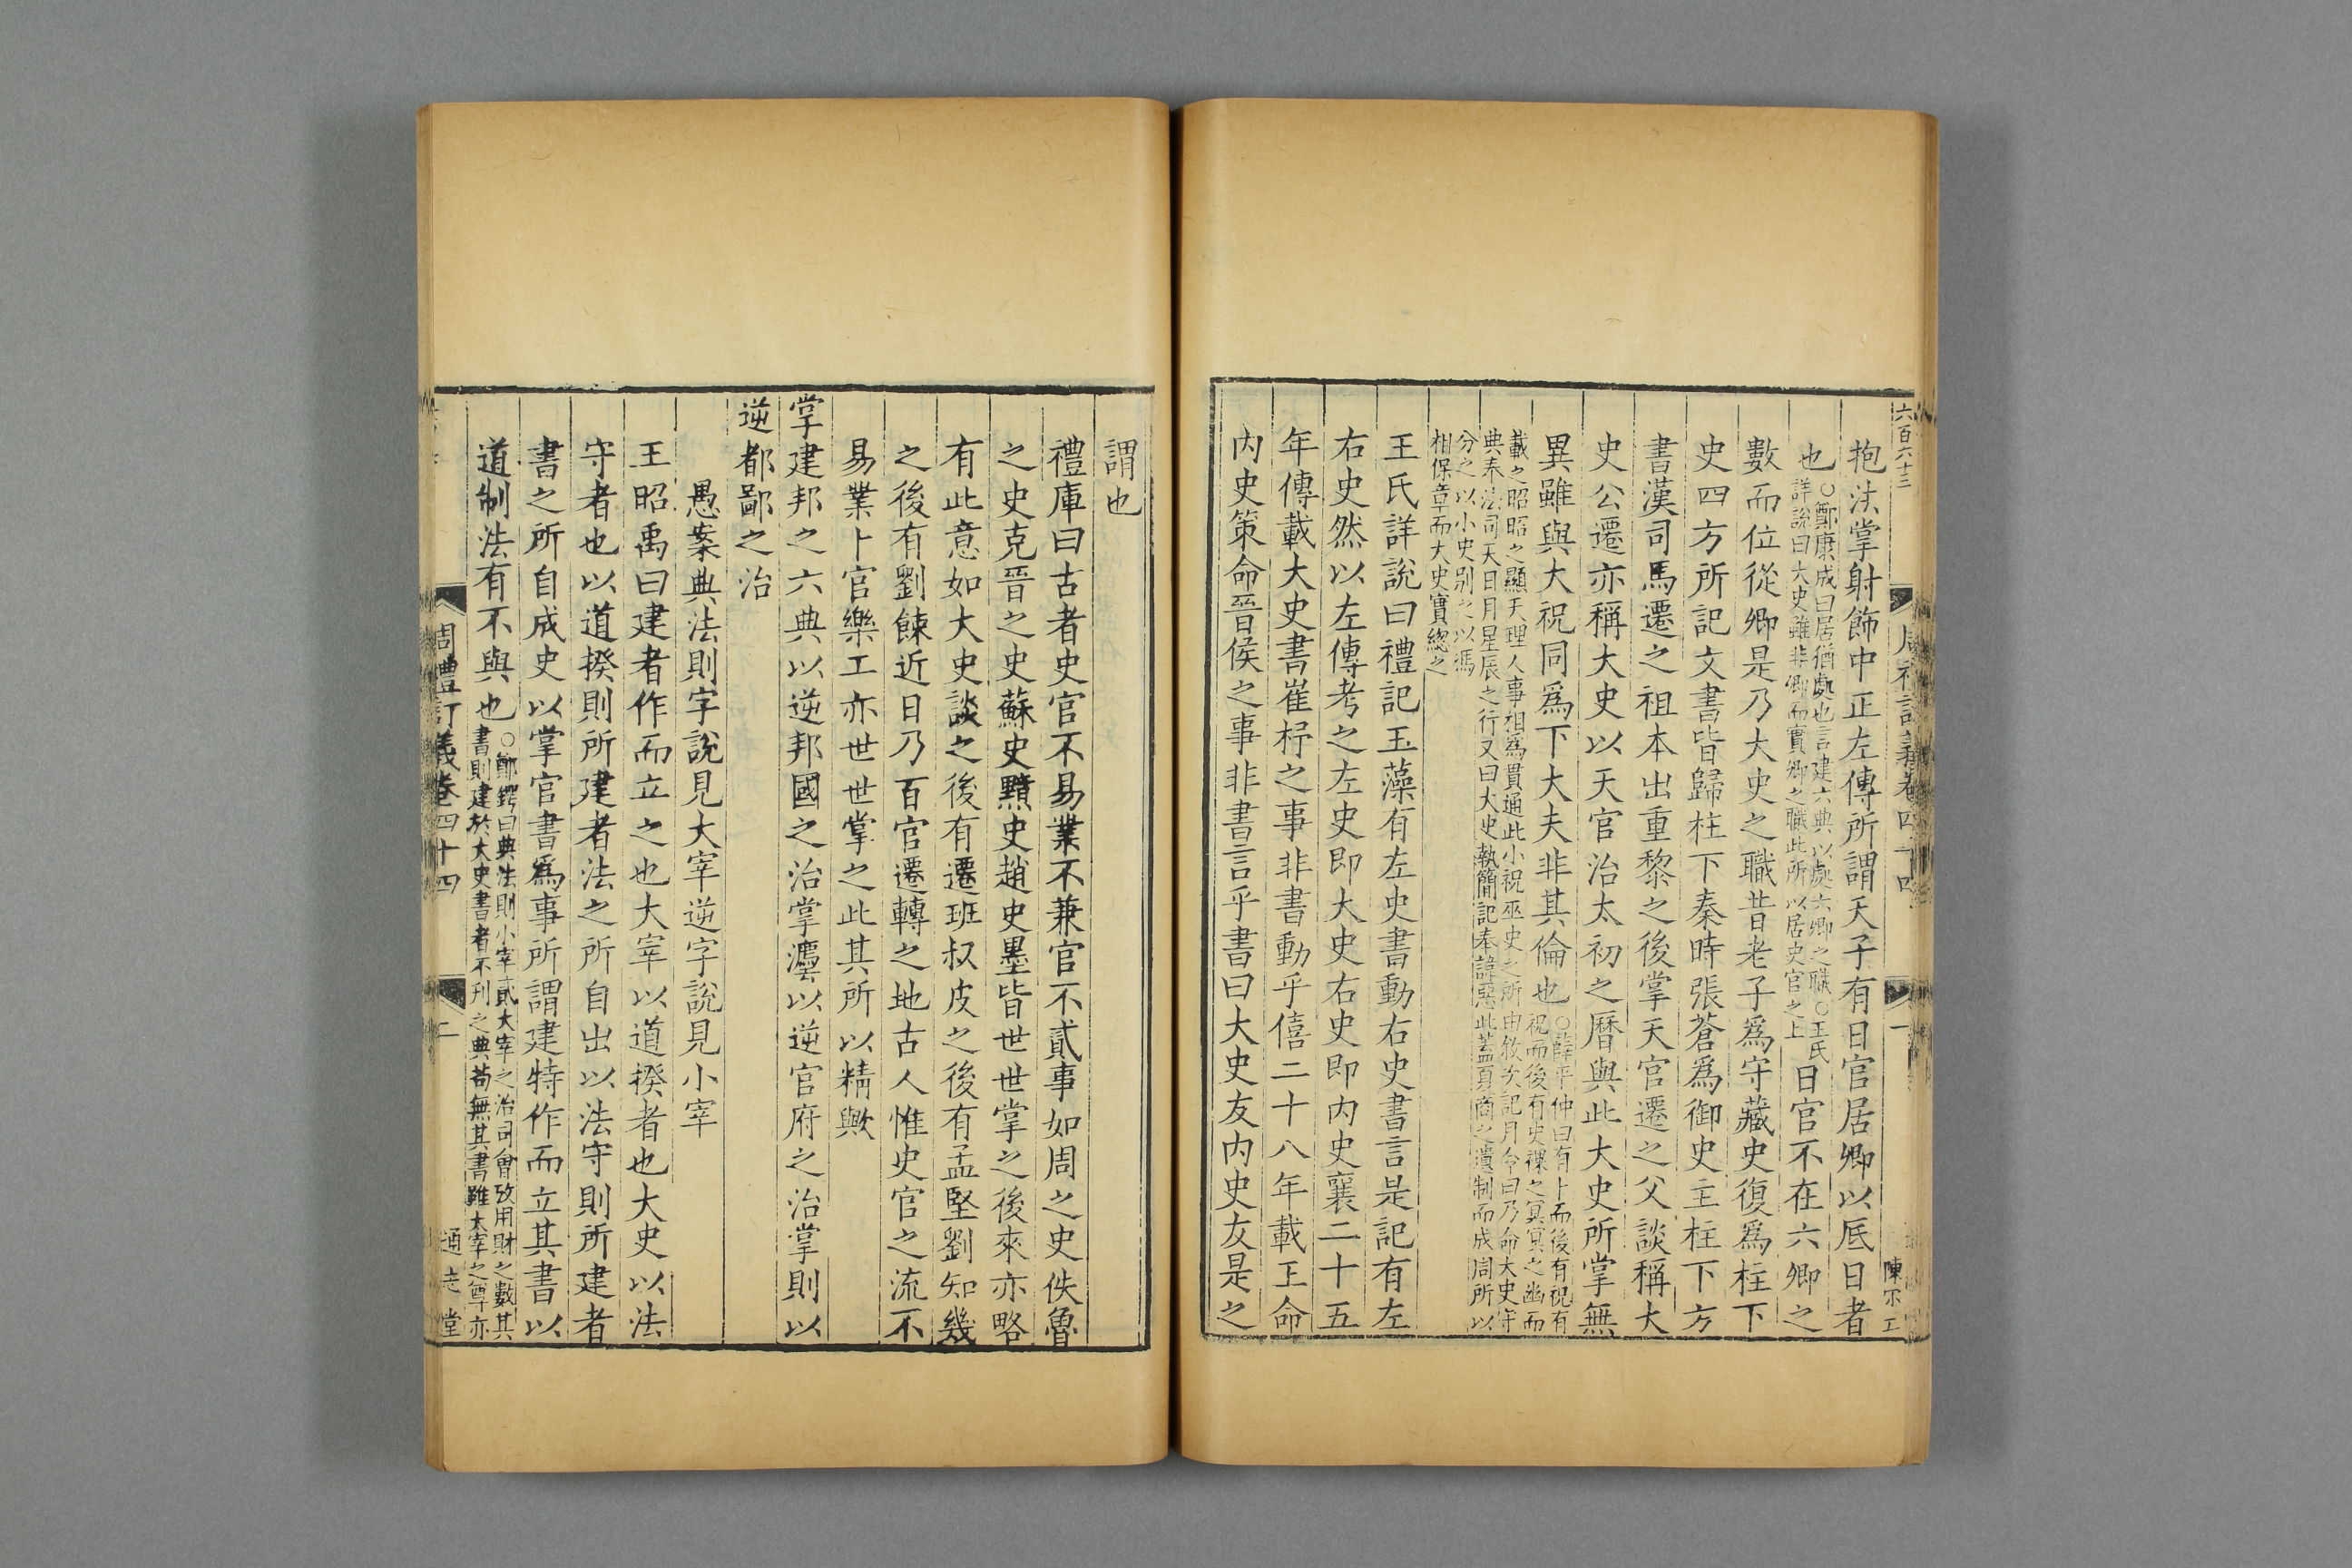 六百六十三
周禮訂義卷四十四
一
陳不工
抱法掌射飾中正左傳所謂天子有日官居卿以底日者
也○鄭康成曰居猶處也言建六典以處六卿之職○王氏
詳說曰大史雖非卿而實卿之職此所以居史官之上
日官不在六卿之
數而位從卿是乃大史之職昔老子爲守藏史復爲柱下
史四方所記文書皆歸柱下秦時張蒼爲御史主柱下方
書漢司馬遷之祖本出重黎之後掌天官遷之父談稱大
史公遷亦稱大史以天官治太初之曆與此大史所掌無
異雖與大祝同爲下大夫非其倫也
○薛平仲曰有卜而後有祝有
祝而後有史祼之冥冥之幽而
載之昭昭之顯天理人事相爲貫通此小祝巫史之所由攸次記月令曰乃命大史守
典奉法司天日月星辰之行又曰大史執簡記奉諱惡此蓋夏商之遺制而成周所以
分之以小史別之以馮
相保章而大史實總之
王氏詳說曰禮記玉藻有左史書動右史書言是記有左
右史然以左傳考之左史即大史右史即內史襄二十五
年傳載大史書崔杼之事非書動乎僖二十八年載王命
內史策命晉侯之事非書言乎書曰大史友內史友是之
謂也
禮庫曰古者史官不易業不兼官不貳事如周之史佚魯
之史克晉之史蘇史黯史趙史墨皆世世掌之後來亦略
有此意如大史談之後有遷班叔皮之後有孟堅劉知幾
之後有劉餗近日乃百官遷轉之地古人惟史官之流不
易業卜官樂工亦世世掌之此其所以精歟
掌建邦之六典以逆邦國之治掌灋以逆官府之治掌則以
逆都鄙之治
愚案典法則字說見大宰逆字說見小宰
王昭禹曰建者作而立之也大宰以道揆者也大史以法
守者也以道揆則所建者法之所自出以法守則所建者
書之所自成史以掌官書爲事所謂建特作而立其書以
道制法有不與也
○鄭鍔曰典法則小宰貳大宰之治司會攷用財之數其
書則建於大史書者不刋之典苟無其書雖大宰之尊亦
周禮訂義卷四十四
二
通志堂